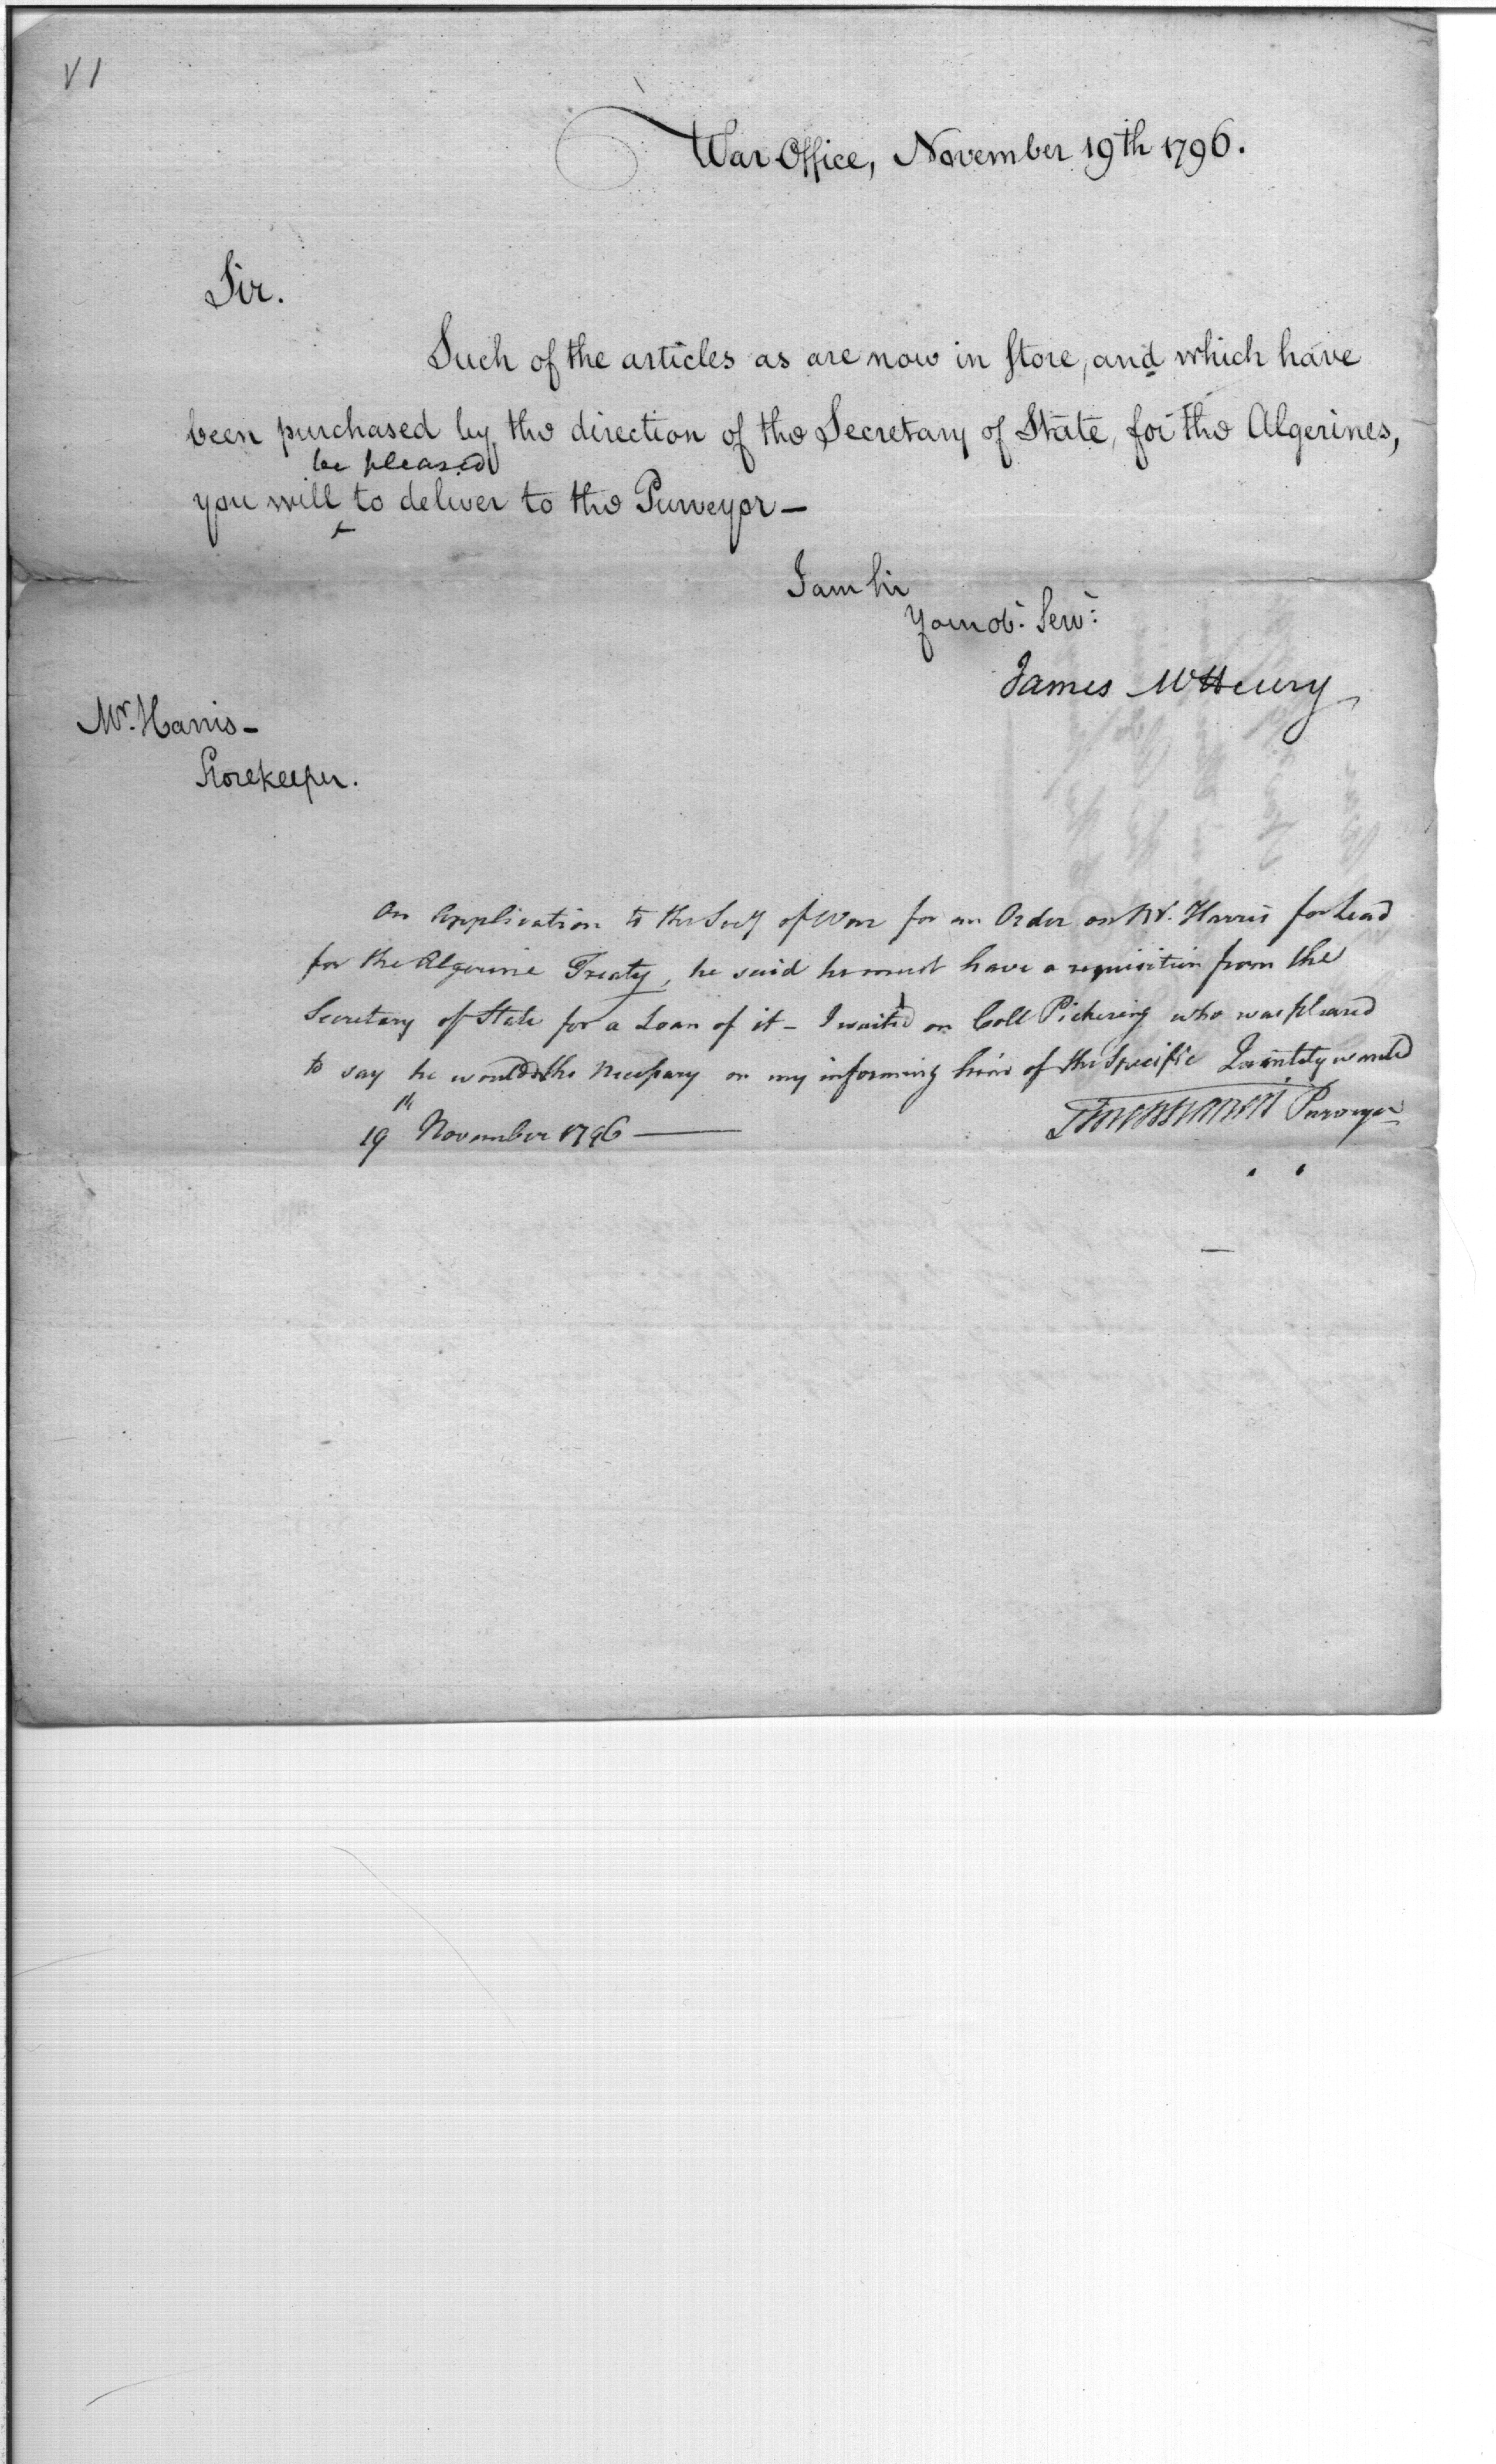 V1
War Office, November 19th 1796.
Sir.
Such of the articles as are now in Store, and which have
been purchased by the direction of the Secretary of State, for the Algerines,
be pleased
you will to deliver to the Purveyor—
I am Sir
Your obt. Servt.
James McHenry
Mr. Harris—
Storekeeper.
On Application to the Secy of War for an Order on Mr. Harris for Lead
for the Algerine Treaty, he said he must have a requisition from the
Secretary of State for a Loan of it— I waited on Coll Pickering who was pleased
to say he would do the Necessary on my informing him of the Specific Quantity wanted
19th November 1796 —
Purveyor